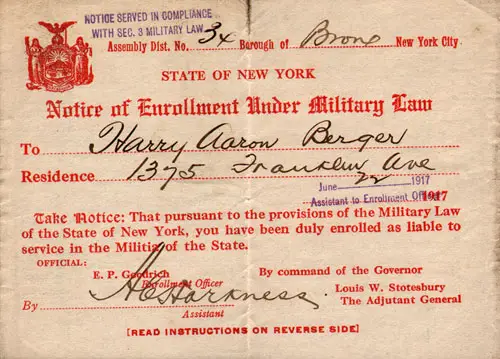 NOTICE SERVED IN COMPLIANCE
WITH SEC. 3 MILITARY LAW
Assembly Dist. No. 34 Borough of Bronx New York City.
STATE OF NEW YORK
Notice of Enrollment Under Military Law
To Harry Aaron Berger
Residence 1375 Franklin Ave
June 22 1917
Assistant to Enrollment Officer 1917
Take Notice: That pursuant to the provisions of the Military Law
of the State of New York, you have been duly enrolled as liable to
service in the Militia of the State.
OFFICIAL:
E. P. Goodrich
Enrollment Officer
By command of the Governor
By A E Harkness
Assistant
Louis W. Stotesbury
The Adjutant General
[READ INSTRUCTIONS ON REVERSE SIDE]